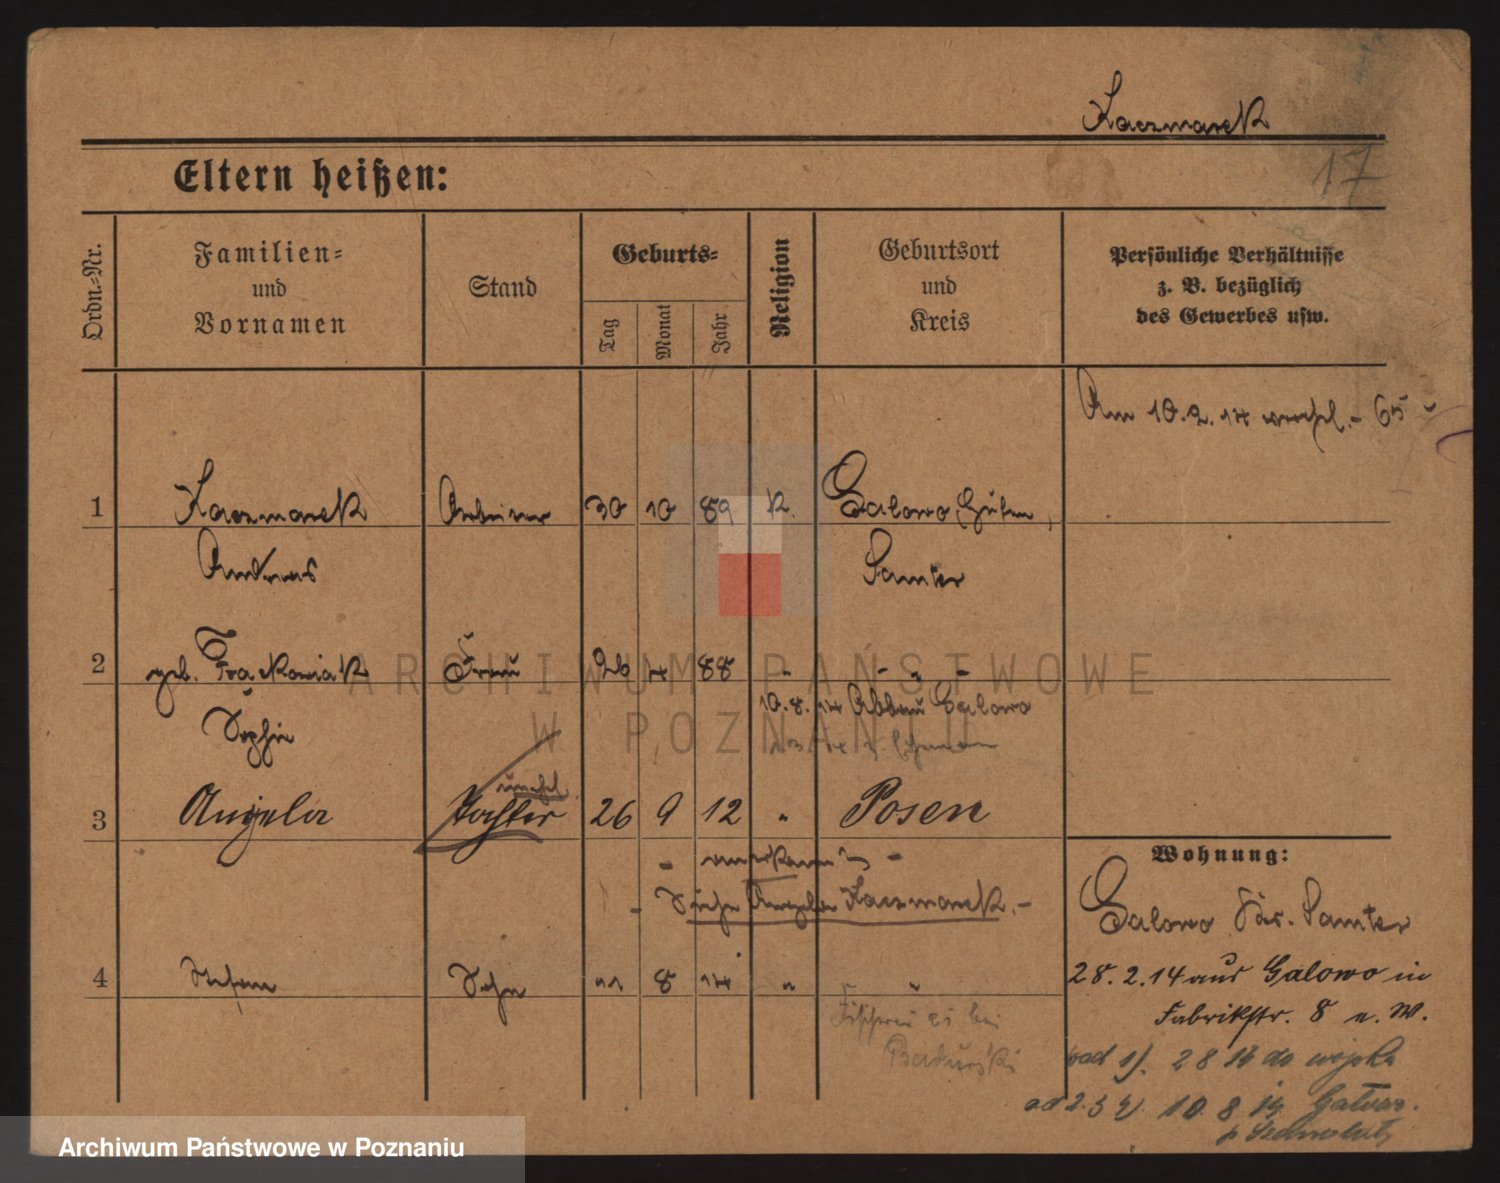 Kaczmarek
17
Eltern heißen:
Ordn.-Nr.
Familien-
und
Vornamen
Stand
Geburts-
Tag
Monat
Jahr
Religion
Geburtsort
und
Kreis
Persönliche Verhältnisse
z. B. bezüglich
des Gewerbes usw.
Am 10.2.14
1 Kaczmarek Arbeiter 30 10 89 K. Galowo
Andreas Samter
2 geb. Frąckowiak Frau 26 4 88 " - " -
Sophie 10.8.14 Abbau Galowo
unehel.
3 Angela Tochter 26 9 12 " Posen
- anerkannt -
- Siehe Angela Kaczmarek. -
Wohnung:
Galowo Kr. Samter
4 Stefan Sohn 11 8 14 " "
28.2.14 aus Galowo in
Fabrikstr. 8 n. W.
Fischerei 21 bei
Badurski
ad 1). 2 8 14 do wojska
ad 2. 3 4. 10. 8 14
ARCHIWUM PAŃSTWOWE
W POZNANIU
Archiwum Państwowe w Poznaniu